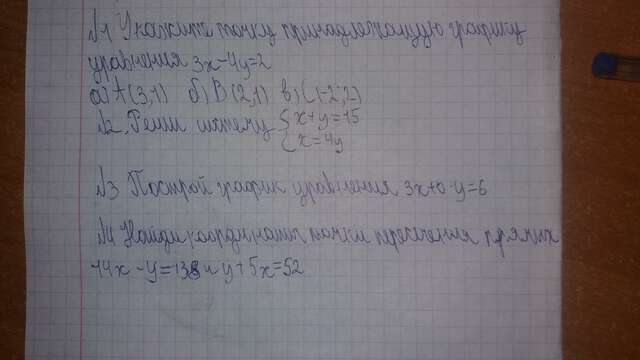 №1 Укажите точку принадлежащую графику
уравнения 3x-4y=2
а) A(3,1) б) B(2,1) в) C(-2;2)
№2. Реши систему { x+y=15
{ x=4y
№3 Построй график уравнения 3x+0·y=6
№4 Найди координаты точки пересечения прямых
14x-y=138 и y+5x=52